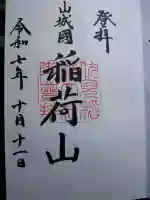 登拝
山城國
稲荷山
令和七年 十月 十一日